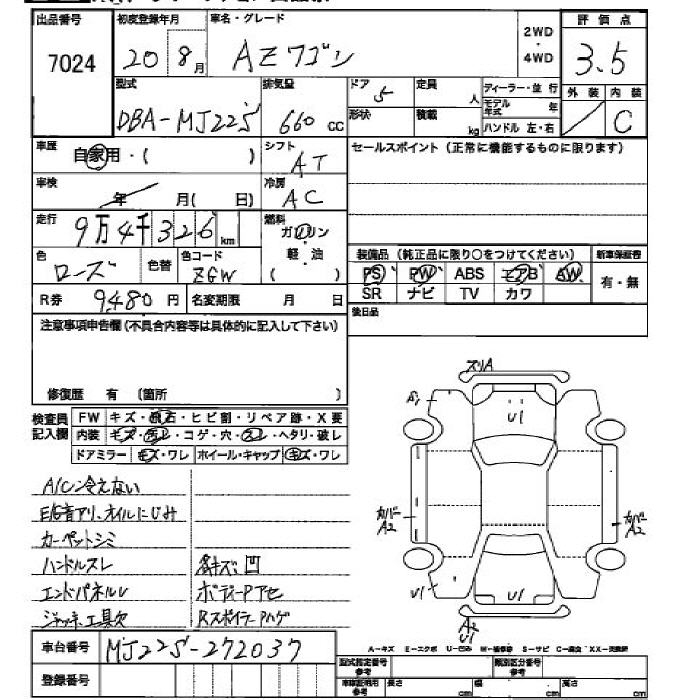 出品番号 初度登録年月 車名・グレード 評価点
7024 20 8月 AZワゴン 2WD・4WD 3.5
型式 排気量 ドア 定員 ディーラー・並行 外装 内装
DBA-MJ22S 660cc 5 人 モデル年式 年 C
形状 積載 kg ハンドル 左・右
車歴 シフト セールスポイント(正常に機能するものに限ります)
自家用・( ) AT
車検 年 月(日) 冷房 AC
走行 燃料
9万4千326km ガソリン・軽・油( )
色 色替 色コード 装備品(純正品に限り○をつけてください) 新車保証書
ローズ ZGW PS PW ABS エアB AW 有・無
SR ナビ TV カワ
R券 9,480円 名変期限 月 日 後日品
注意事項申告欄(不具合内容等は具体的に記入して下さい)
修復歴 有 (箇所 )
検査員記入欄 FW キズ・飛石・ヒビ割・リペア跡・X要
内装 キズ・汚レ・コゲ・穴・スレ・ヘタリ・破レ
ドアミラー キズ・ワレ ホイール・キャップ キズ・ワレ
A/C冷えない
E始音アリ、オイルにじみ
カーペットシミ
ハンドルスレ 各キズ凹
エンドパネルレ ボディーPアセ
ジャッキ工具欠 RスポイラーPハゲ
ズリA
A1 U1
カバーA2 カバーA2
U1 U1
A2
U1
車台番号 MJ22S-272037
A-キズ E-エクボ U-凹み W-補修跡 S-サビ C-腐食 XX-交換済
登録番号 型式指定番号参考 類別区分番号参考
車庫証明用参考 長さ cm 幅 cm 高さ cm